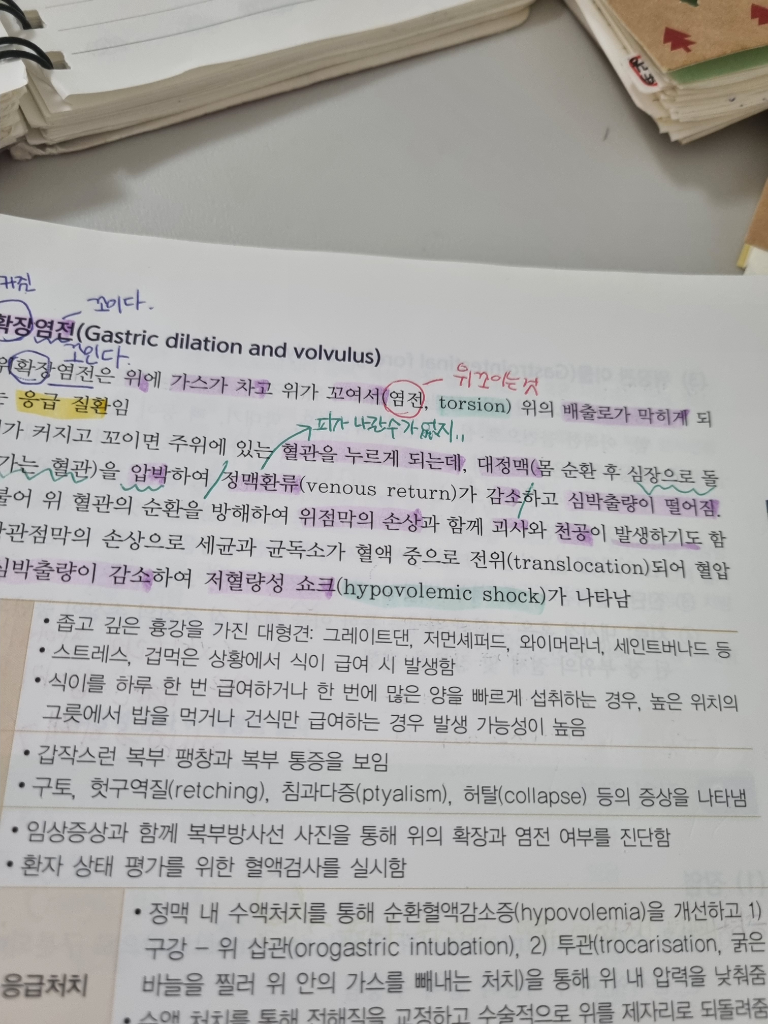 커진
꼬이다.
확장염전(Gastric dilation and volvulus)
꼬인다.
위확장염전은 위에 가스가 차고 위가 꼬여서(염전, torsion) 위의 배출로가 막히게 되
위 꼬이는것
는 응급 질환임
피가 나갈수가 없지..
가 커지고 꼬이면 주위에 있는 혈관을 누르게 되는데, 대정맥(몸 순환 후 심장으로 돌
가는 혈관)을 압박하여 정맥환류(venous return)가 감소하고 심박출량이 떨어짐.
불어 위 혈관의 순환을 방해하여 위점막의 손상과 함께 괴사와 천공이 발생하기도 함
장관점막의 손상으로 세균과 균독소가 혈액 중으로 전위(translocation)되어 혈압
심박출량이 감소하여 저혈량성 쇼크(hypovolemic shock)가 나타남
• 좁고 깊은 흉강을 가진 대형견: 그레이트댄, 저먼셰퍼드, 와이머라너, 세인트버나드 등
• 스트레스, 겁먹은 상황에서 식이 급여 시 발생함
• 식이를 하루 한 번 급여하거나 한 번에 많은 양을 빠르게 섭취하는 경우, 높은 위치의
그릇에서 밥을 먹거나 건식만 급여하는 경우 발생 가능성이 높음
• 갑작스런 복부 팽창과 복부 통증을 보임
• 구토, 헛구역질(retching), 침과다증(ptyalism), 허탈(collapse) 등의 증상을 나타냄
• 임상증상과 함께 복부방사선 사진을 통해 위의 확장과 염전 여부를 진단함
• 환자 상태 평가를 위한 혈액검사를 실시함
• 정맥 내 수액처치를 통해 순환혈액감소증(hypovolemia)을 개선하고 1)
구강 – 위 삽관(orogastric intubation), 2) 투관(trocarisation, 굵은
응급처치
바늘을 찔러 위 안의 가스를 빼내는 처치)을 통해 위 내 압력을 낮춰줌
• 수액 처치를 통해 전해질을 교정하고 수술적으로 위를 제자리로 되돌려줌